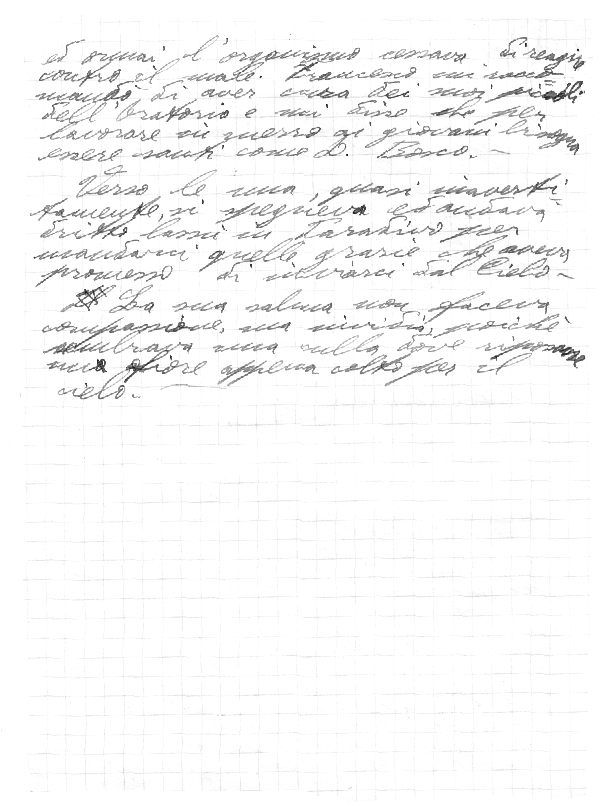 ed ormai l'organismo cessava di reagire
contro il male. Francesco mi racco-
mandò di aver cura dei suoi piccoli
dell'Oratorio e mi disse che per
lavorare in mezzo ai giovani bisogna
essere santi come D. Bosco. -
Verso le una, quasi inaverti-
tamente, si spegneva ed andava
dritto lassù in Paradiso per
mandarci quelle grazie che aveva
promesso di inviarci dal Cielo -
La sua salma non faceva
compassione, ma invidia, poichè
sembrava una culla dove riposasse
un fiore appena colto per il
cielo. -